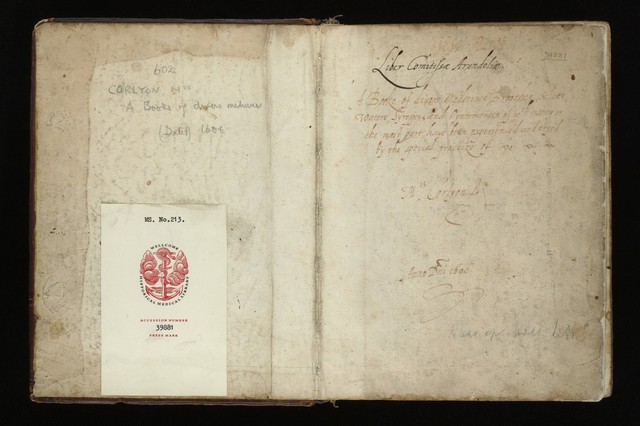 602
CORLYON Mrs
A Booke of divers medicines
(Dated) 1606
MS. No.213.
WELLCOME
HISTORICAL MEDICAL LIBRARY
ACCESSION NUMBER
39881
PRESS MARK
39881
Liber Comitissæ Arundeliæ
A Booke of divers Medecines, Broothes, Salves,
Waters, Syroppes and Oyntementes of which many or
the most part have been experienced and tryed
by the speciall practize of
Mrs Corlyon
Anno Dni 1606